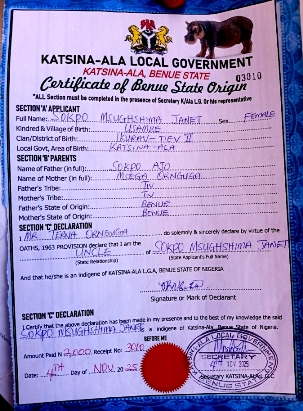 KATSINA-ALA LOCAL GOVERNMENT
KATSINA-ALA, BENUE STATE
03010
Certificate of Benue State Origin
*ALL Section must be completed in the presence of Secretary K/Ala L.G. Or his representative
SECTION 'A' APPLICANT
Full Name: SOKPO MSUGHSHIMA JANET Sex FEMALE
Kindred & Village of Birth: USAMBE
Clan/District of Birth: IKURAV-TIEV II
Local Govt, Area of Birth: KATSINA-ALA
SECTION 'B' PARENTS
Name of Father (in full): SOKPO AJO
Name of Mother (in full): MSEGA ORNGUGA
Father's Tribe: TIV
Mother's Tribe: TIV
Father's State of Origin: BENUE
Mother's State of Origin: BENUE
SECTION 'C' DECLARATION
I MR. ORNGUGA do solemnly & sincerely declare by virtue of the
OATHS, 1963 PROVISION declare that I am the
UNCLE of SOKPO MSUGHSHIMA JANET
(State Relationship) (State Applicant's Full Name)
And that he/she is an indigene of KATSINA-ALA L.G.A, BENUE STATE OF NIGERIA
Signature or Mark of Declarant
SECTION 'C' DECLARATION
I Certify that the above declaration has been made in my presence and to the best of my knowledge the said
SOKPO MSUGHSHIMA JANET is a indigene of Katsina-Ala Benue State of Nigeria.
BEFORE ME
Amount Paid N 2,000 Receipt No: 3010
Date: 4TH Day of NOV. 2025
SECRETARY
4TH NOV 2025
SECRETARY KATSINA-ALA L.G.
BENUE STATE